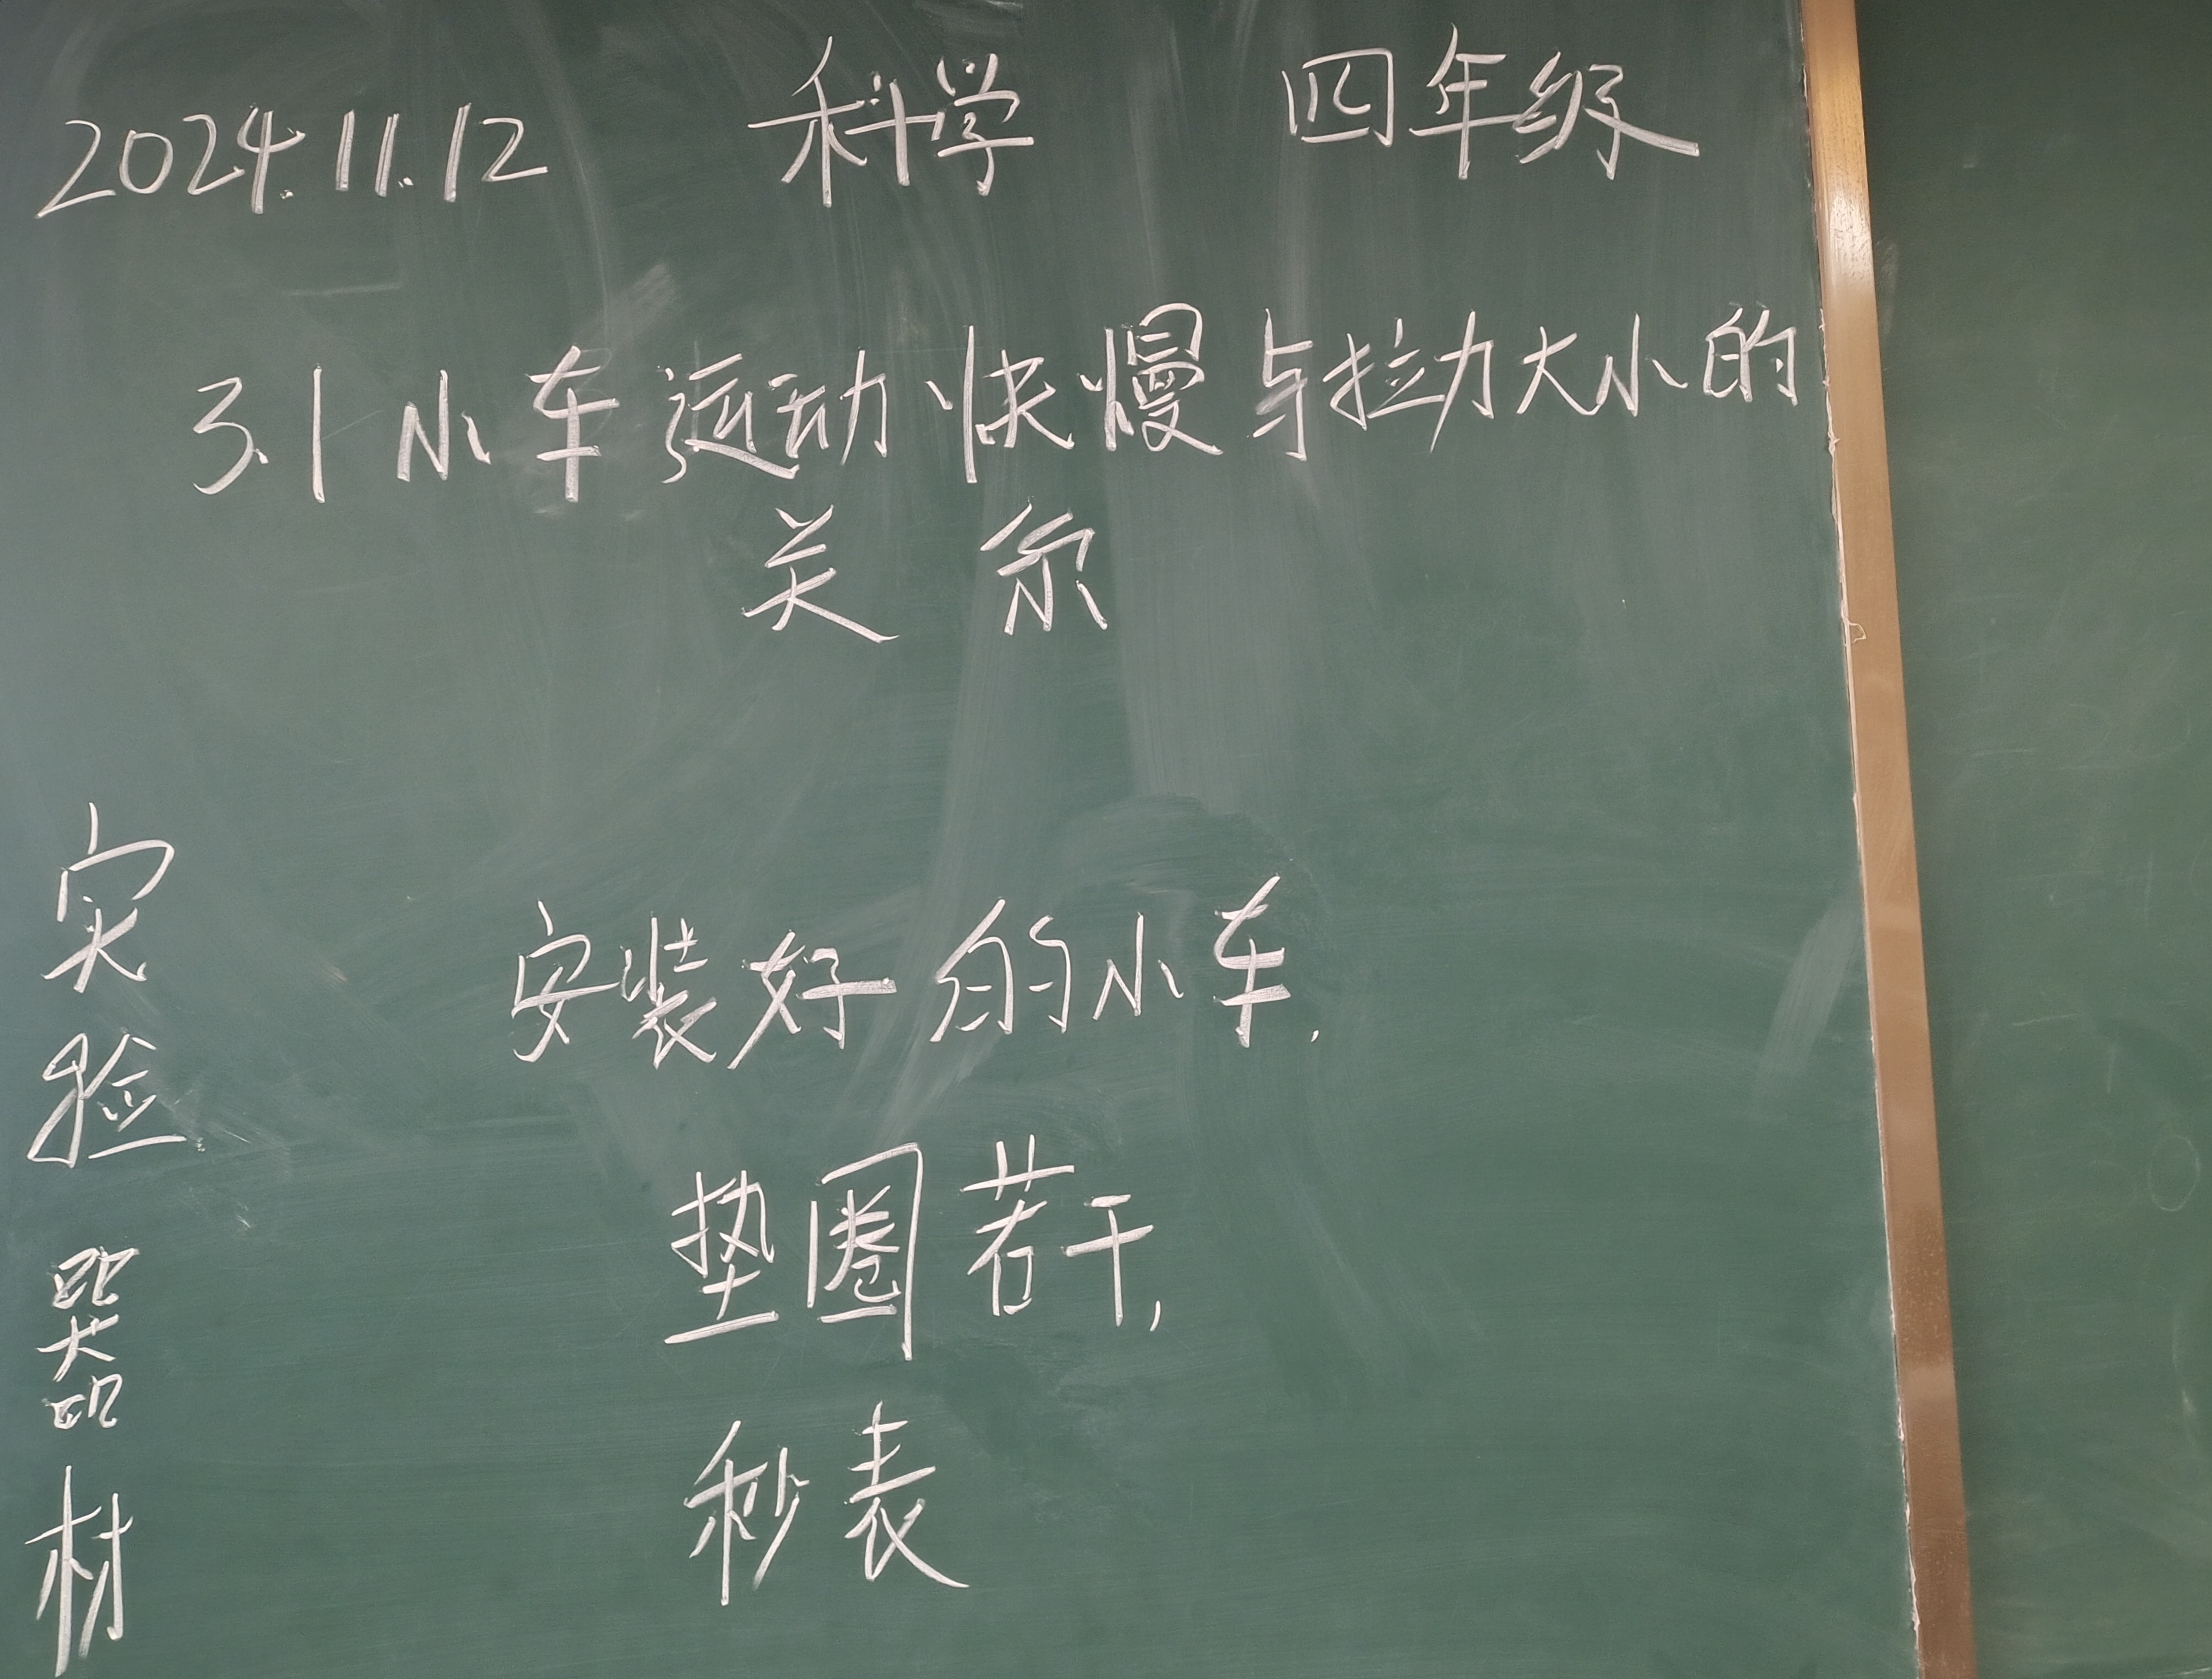 2024.11.12 科学 四年级
3.1 小车运动快慢与拉力大小的
关系
实验器材
安装好的小车,
垫圈若干,
秒表